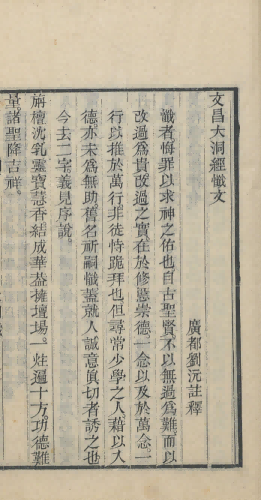 文昌大洞經懺文
廣都劉沅註釋
懺者悔罪以求神之佑也自古聖賢不以無過為難而以
改過為貴改過之實在於修慝崇德一念以及於萬念一
行以推於萬行非徒恃跪拜也但尋常少學之人藉以入
德亦未為無助舊名祈嗣懺蓋就人誠意真切者誘之也
今去二字義見序說
旃檀沈乳靈寶惎香結成華葢擁壇場一炷遍十方功德難
量諸聖降吉祥